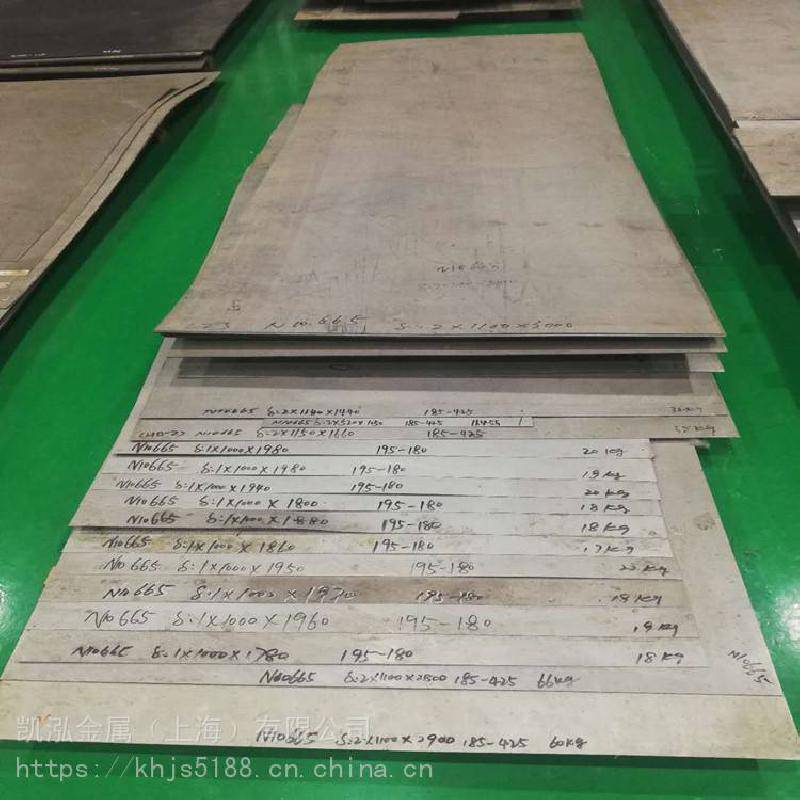 N10665 δ:2×1100×3000
N10665 δ:2×1140×1440 185-425
N10665 δ:2×520×1150 185-425
N10665 δ:2×1150×1660 185-425
N10665 δ:1×1000×1980 195-180 20kg
N10665 δ:1×1000×1980 195-180 19kg
N10665 δ:1×1000×1940 195-180 20kg
N10665 δ:1×1000×1800 195-180 18kg
N10665 δ:1×1000×1880 195-180 18kg
N10665 δ:1×1000×1860 195-180 17kg
N10665 δ:1×1000×1950 195-180 22kg
N10665 δ:1×1000×1970 195-180 19kg
N10665 δ:1×1000×1960 195-180 19kg
N10665 δ:1×1000×1780 195-180 18kg
N10665
N10665 δ:2×1100×2800 185-425 66kg
凯泓金属（上海）有限公司
N10665 δ:2×1100×2900 185-425 60kg
https://khjs5188.cn.china.cn/